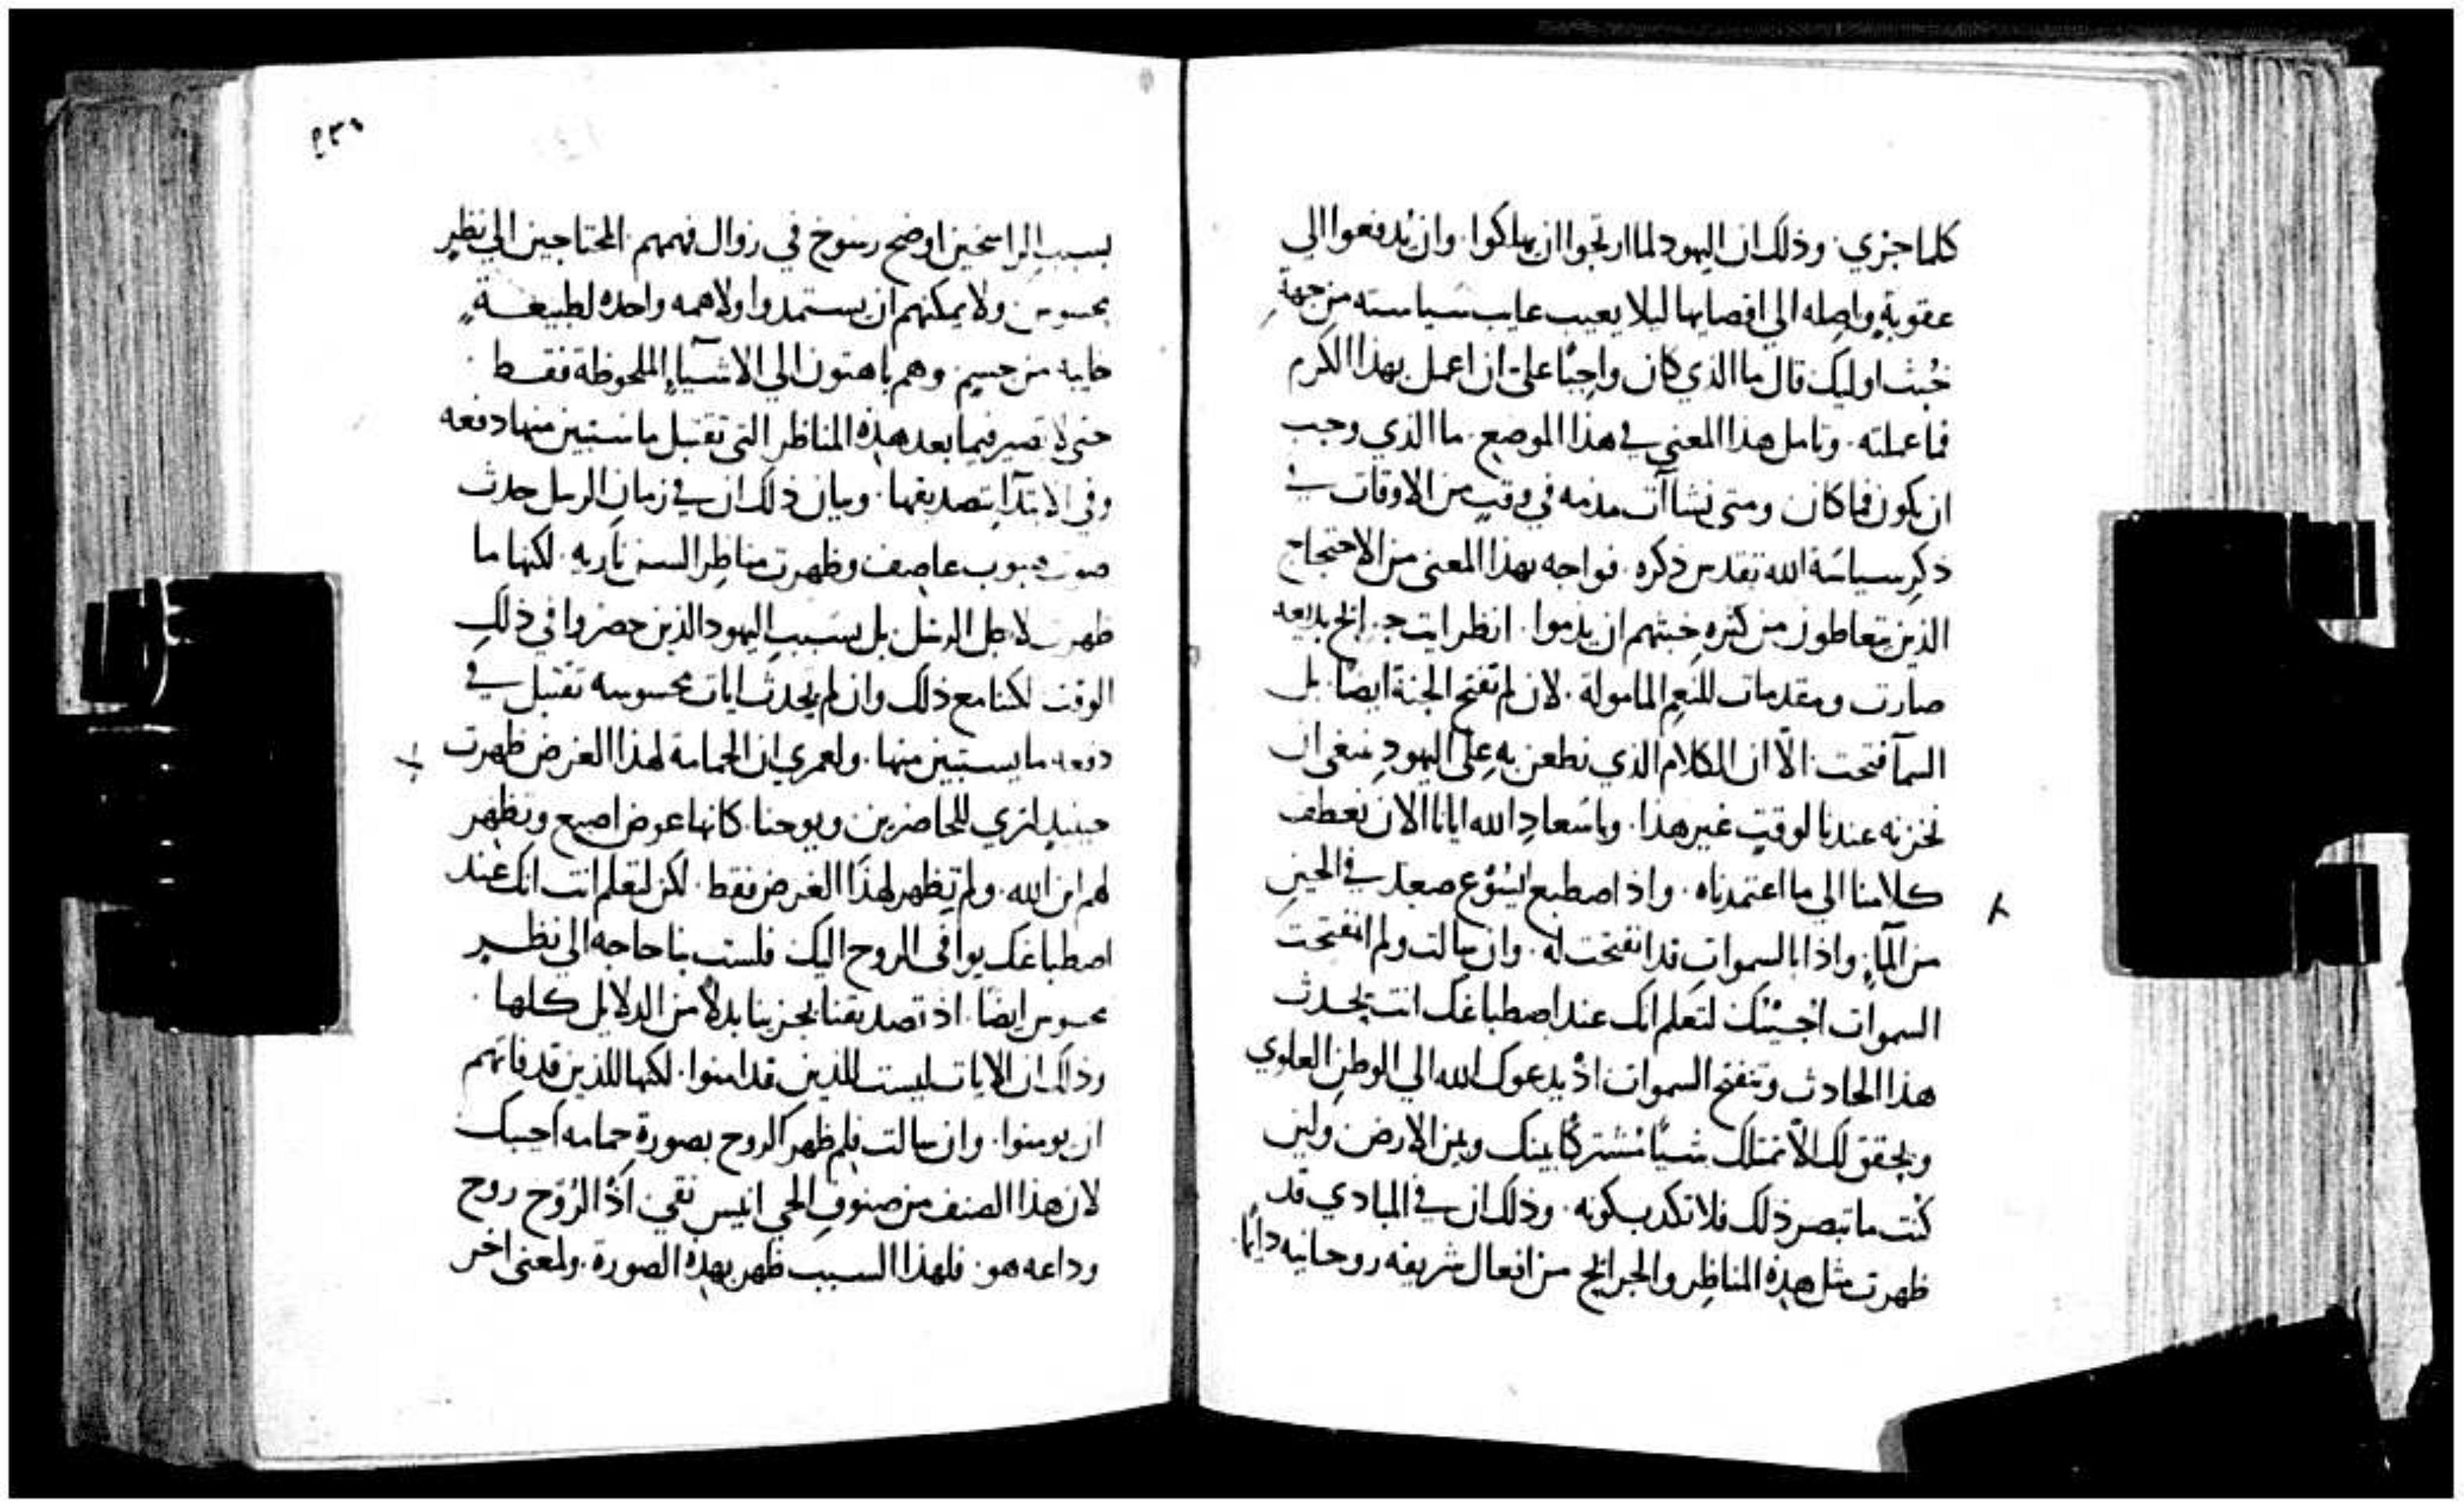 كلما جزي. وذلك ان اليهود لما ارتجوا ان يهلكوا. وان يُدفعوا الي
عقوبةٍ واصِله الي اقصايها ليلا يعيب عايب سياسته من جهةِ
خُبث اوليك قال ما الذي كان واجبًا علىّ ان اعمل بهذا الكرم
فما عملته. وتامل هذا المعني في هذا الموضع. ما الذي وجب
ان يكون فما كان ومتي نشاآت مذمه في وقتٍ من الاوقات في
ذكرِ سياسَة الله تقدس ذكره. فواجه بهذا المعني من الاحتجاج
الذين يتعاطون من كثره خبثهم ان يذموا. انظر ايت جرايح بديعه
صارت ومقدمات للنعمِ المامولة. لان لم تفتح الجنة ايضًا. بل
السمآ فتحت. الّا ان الكلام الذي نطعن بهِ على اليهودِ ينبغي ان
نخزنه عندنا لوقتٍ غير هذا. وباسَعادِ الله ايانا الان نعطف
كلامنا الي ما اعتمدناه. واذ اصطبع ايسُوع صعد في الحينِ
من المآءِ واذا بالسمواتِ قد انفتحت له. وان سالت ولم انفتحت
السموات اجبتُك لتعلم انك عند اصطباغك انت يحدث
هذا الحادث وتنفتح السموات اذْ يدعوك الله الي الوطنِ العلوي
ويحقق لك الّا تمتلك شيًا مُشتركًا بينك وبين الارض ولين
كُنت ما تبصر ذلك فلا تكدب بكونه. وذلك ان في المبادي قد
ظهرت مثل هذهِ المناظِر والجرايح من افعال شريفه روحانيه دايمًا.
٢٣٥
بسببِ الراسخين اوضح رسوخ في زوال فهمهم المحتاجين الي نظير
محسوس ولا يمكنهم ان يستمدوا ولا همه واحده لطبيعــةٍ
خايبه من جسمٍ وهم باهتون الي الاشيآءِ الملحوظة فقــط.
حتي لا تصير فيما بعد هذه المناظر التي تقتبل ما نستبين منها دفعه
وفي الابتدآ بتصديقها. وبيان ذلك ان في زمانِ الرسل حدث
صوت هبوب عاصف وظهرت مناظِر السن ناريه. لكنها ما
ظهرت لاجل الرسُل بل بسَببِ اليهود الذين حضروا في ذلكِ
الوقت لكننا مع ذلك وان لم يحدث ايات محسوسه نقتبل في
دفعه ما يستبين منها. ولعمري ان الحمامة لهذا الغرض ظهرت
حينيدٍ لتري للحاضرين ويوحنا. كانها عوض اصبع وتظهر
لهم ابن الله. ولم تظهر لهذا الغرض فقط. لكن لتعلم انت انك عند
اصطباغك يوافي الروح اليك فلست بنا حاجه الي نظــير
محسوس ايضًا. اذ تصديقنا يجزينا بدلًا من الدلايل كلها.
وذلك ان الايات ليست للذين قد امنوا. لكنها للذين قد فاتهم
ان يومنوا. وان سالت فلم ظهر الروح بصورةِ حمامه اجبك
لان هذا الصنف من صنوفِ الحي انيس نقي اذْ الرُوح روح
وداعه هو. فلهذا السبب ظهر بهذهِ الصورة. ولمعني اخر